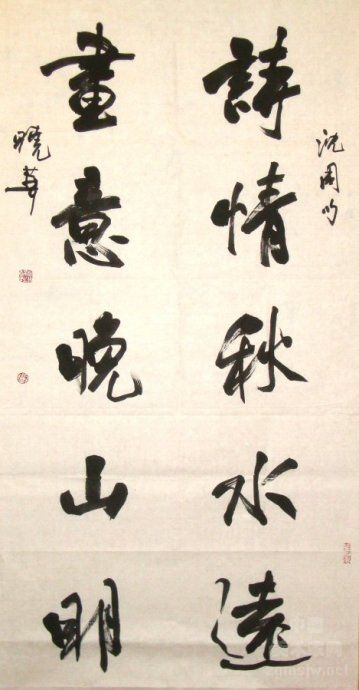 詩情秋水遠
沈周句
畫意晚山明
曉華